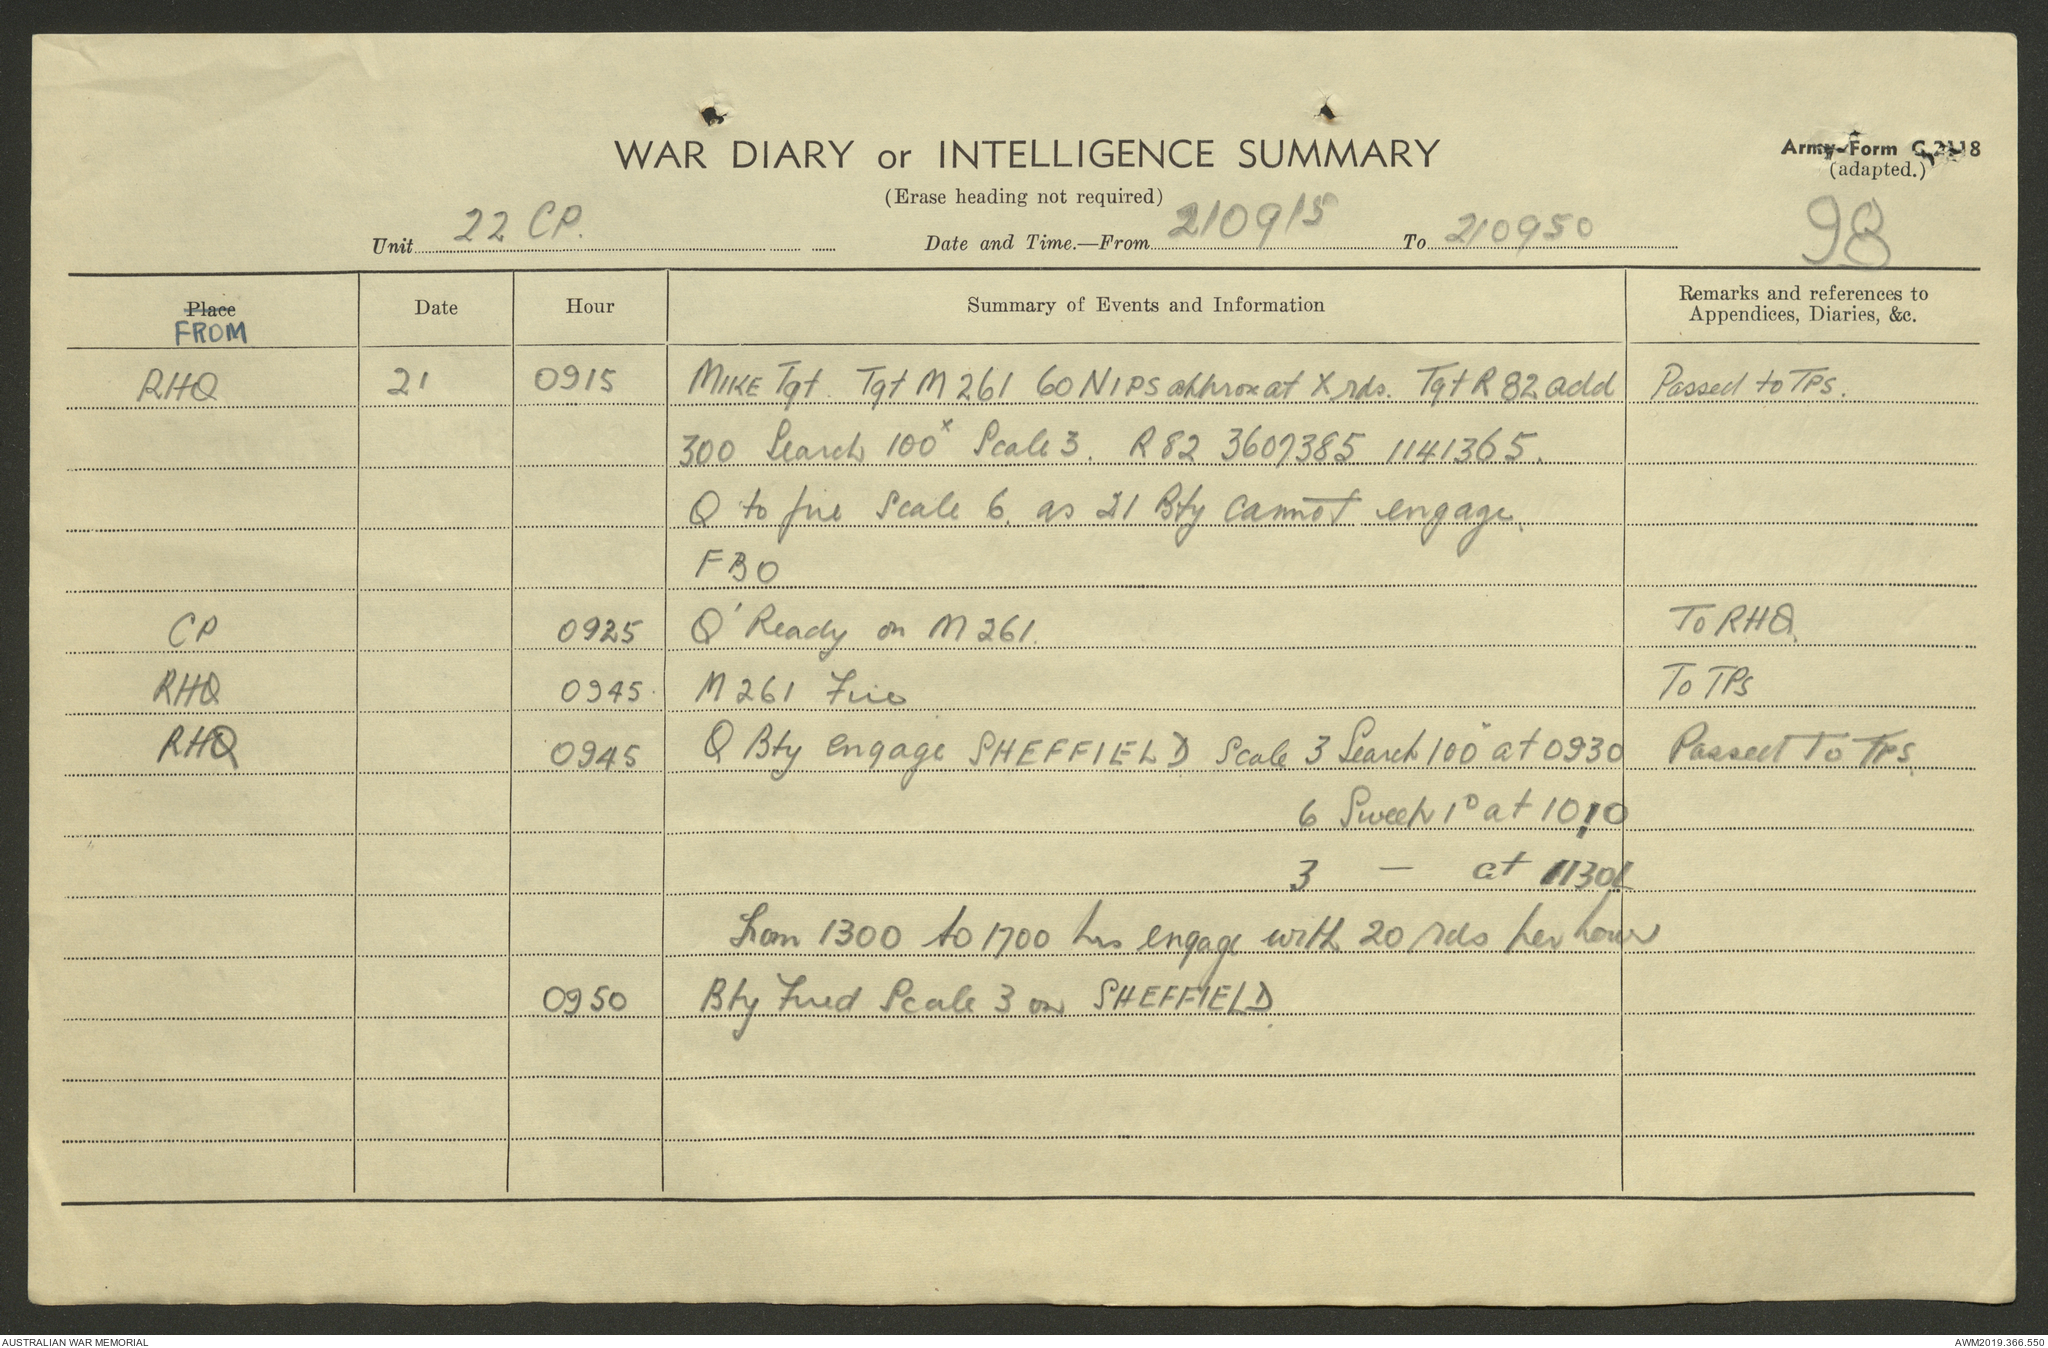 WAR DIARY or INTELLIGENCE SUMMARY
Army Form C.2118
(adapted.)
(Erase heading not required)
98
Unit 22 CP. Date and Time.—From 210915 To 210950
Place Date Hour Summary of Events and Information Remarks and references to
FROM Appendices, Diaries, &c.
RHQ 21 0915 MIKE Tgt. Tgt M 261 60 NIPS approx at X rds. Tgt R 82 add Passed to TPS.
300 Search 100x Scale 3. R 82 3607385 1141365.
Q to fire Scale 6. as 21 Bty cannot engage.
FBO
CP 0925 Q' Ready on M 261. To RHQ.
RHQ 0945. M 261 Fire To TPs
RHQ 0945 Q Bty engage SHEFFIELD Scale 3 Search 100x at 0930 Passed To TPS.
6 Sweep 1° at 1010
3 — at 1130L
From 1300 to 1700 hrs engage with 20 rds per hour
0950 Bty Fired Scale 3 on SHEFFIELD.
AUSTRALIAN WAR MEMORIAL
AWM2019.366.550